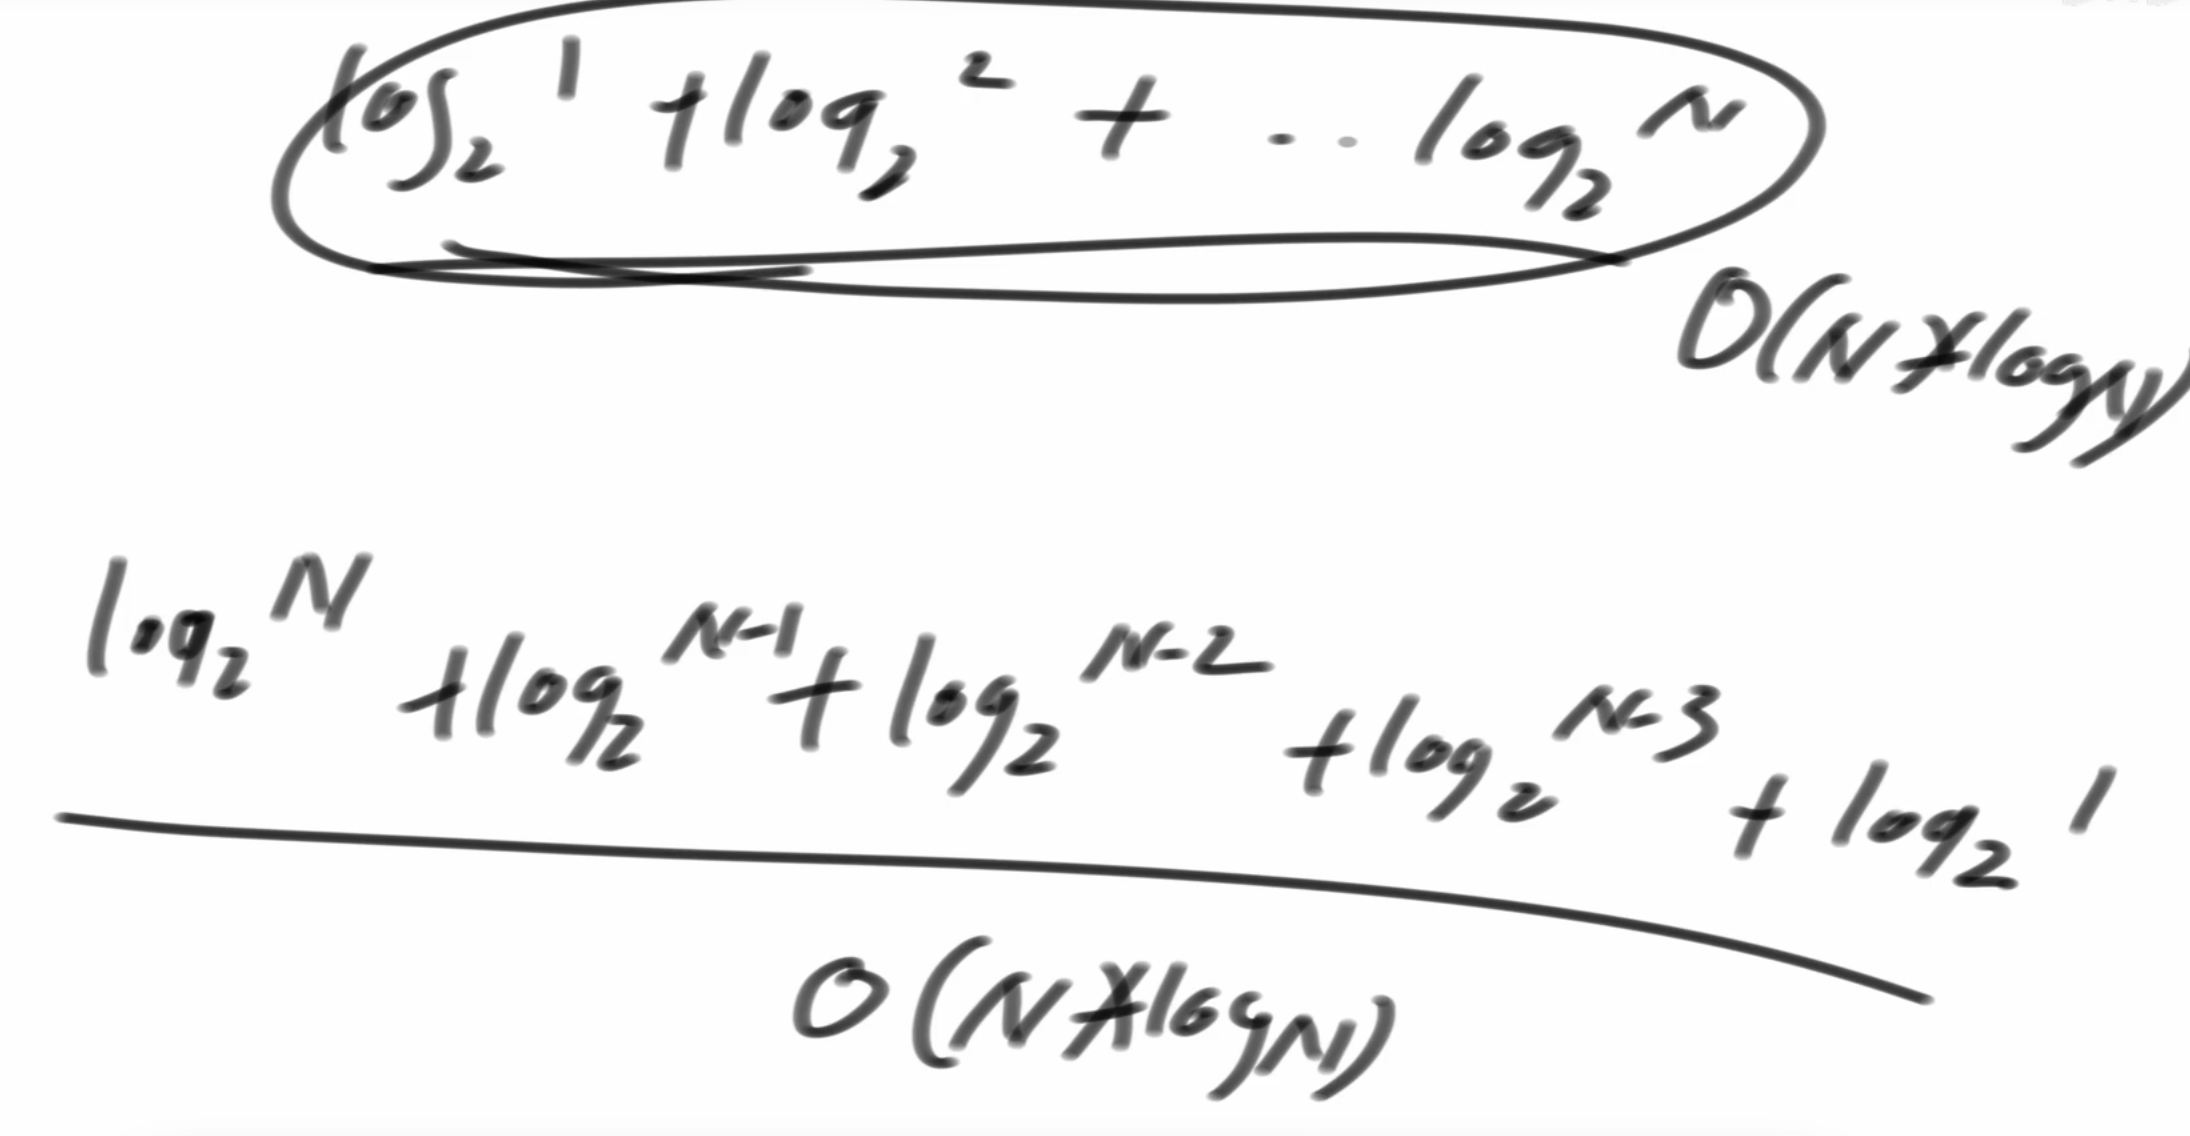 log₂¹ + log₂² + .. log₂ᴺ
O(N*logN)
log₂ᴺ + log₂ᴺ⁻¹ + log₂ᴺ⁻² + log₂ᴺ⁻³ + log₂¹
O(N*logN)